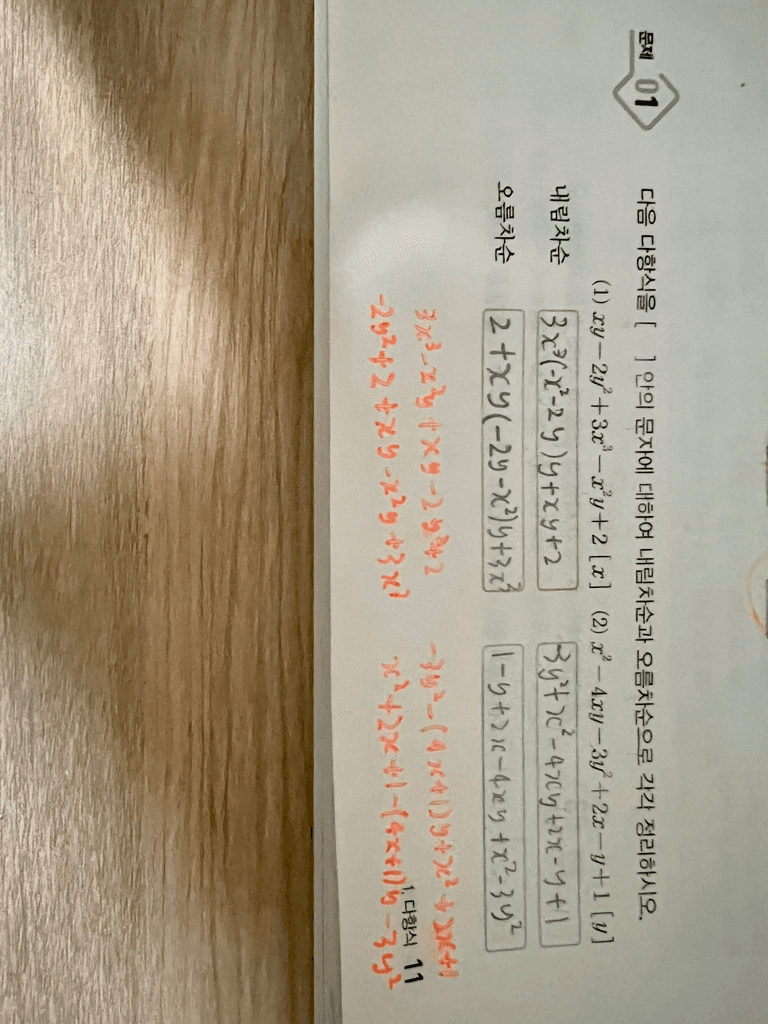 문제 01
다음 다항식을 [ ] 안의 문자에 대하여 내림차순과 오름차순으로 각각 정리하시오.
(1) xy-2y²+3x³-x²y+2 [x] (2) x²-4xy-3y²+2x-y+1 [y]
내림차순 3x³(-x²-2y)y+xy+2 -3y²+x²-4xy+2x-y+1
오름차순 2+xy(-2y-x²)y+3x³ 1-y+2x-4xy+x²-3y²
3x³-x²y+xy-2y²+2 -3y²-(4x+1)y+x²+2x+1
-2y²+2+xy-x²y+3x³ x²+2x+1-(4x+1)y-3y²
1. 다항식 11